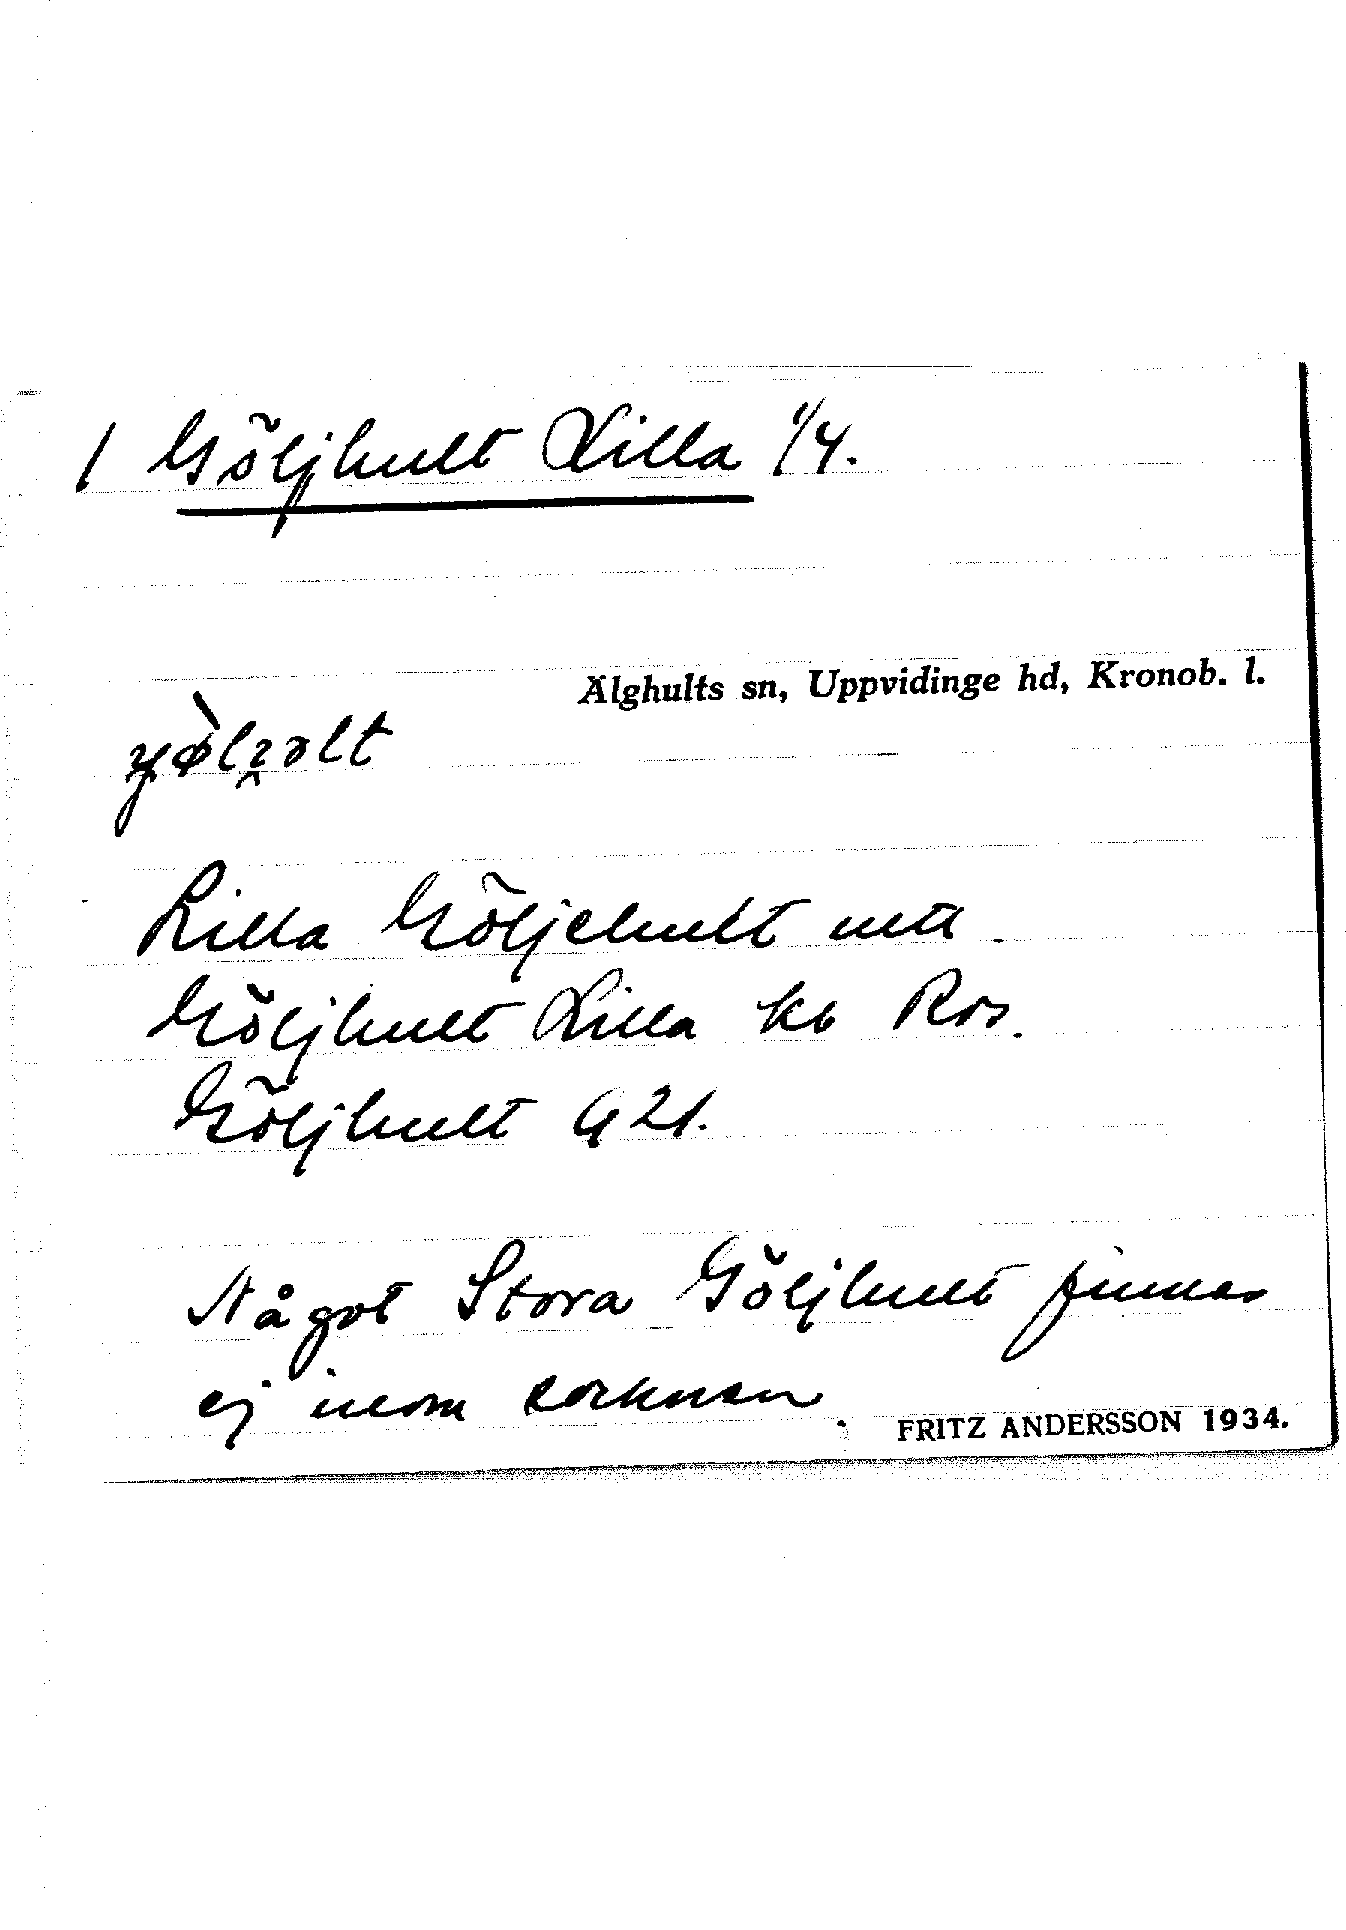 1 Göljhult Lilla 1/4.
Älghults sn, Uppvidinge hd, Kronob. l.
Lilla Göljehult
Göljhult Lilla kb Ros.
Göljhult G 21.
Något Stora Göljhult finnes
ej inom socknen
FRITZ ANDERSSON 1934.